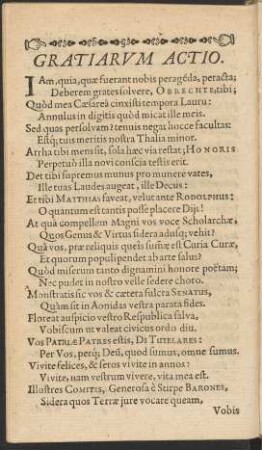 GRATIARVM ACTIO.
IAm, quia, quæ fuerant nobis peragéda, peracta;
Deberem grates solvere, OBRECHTE, tibi;
Quòd mea Cæsareâ cinxisti tempora Lauru:
Annulus in digitis quòd micat ille meis.
Sed quas persolvam? tenuis negat hocce facultas:
Estq́; tuis meritis nostra Thalia minor.
Arrha tibi mens sit, sola hæc via restat; HONORIS
Perpetuò illa novi conscia testis erit.
Det tibi supremus munus pro munere vates,
Ille tuas Laudes augeat, ille Decus:
Et tibi MATTHIAS faveat, velut ante RODOLPHUS:
O quantum est tantis posse placere Dijs!
At quâ compellem Magni vos voce Scholarchæ,
Quos Genus & Virtus sidera adusq; vehit?
Quâ vos, præ reliquis queîs sum̃æ est Curia Curæ,
Et quorum populi pendet ab arte salus?
Quòd miserum tanto dignamini honore poëtam;
Nec pudet in nostro velle sedere choro.
Monstratis sic vos & cætera fulcra SENATUS,
Quàm sit in Aonidas vestra parata fides.
Floreat auspicio vestro Respublica salva,
Vobiscum ut valeat civicus ordo diu.
VOS PATRIÆ PATRES estis, DI TUTELARES:
Per Vos, perq́; Deũ, quod sumus, omne sumus.
Vivite felices, & seros vivite in annos:
Vivite, nam vestrum vivere, vita mea est.
Illustres COMITES, Generosa è Stirpe BARONES,
Sidera quos Terræ jure vocare queam,
Vobis